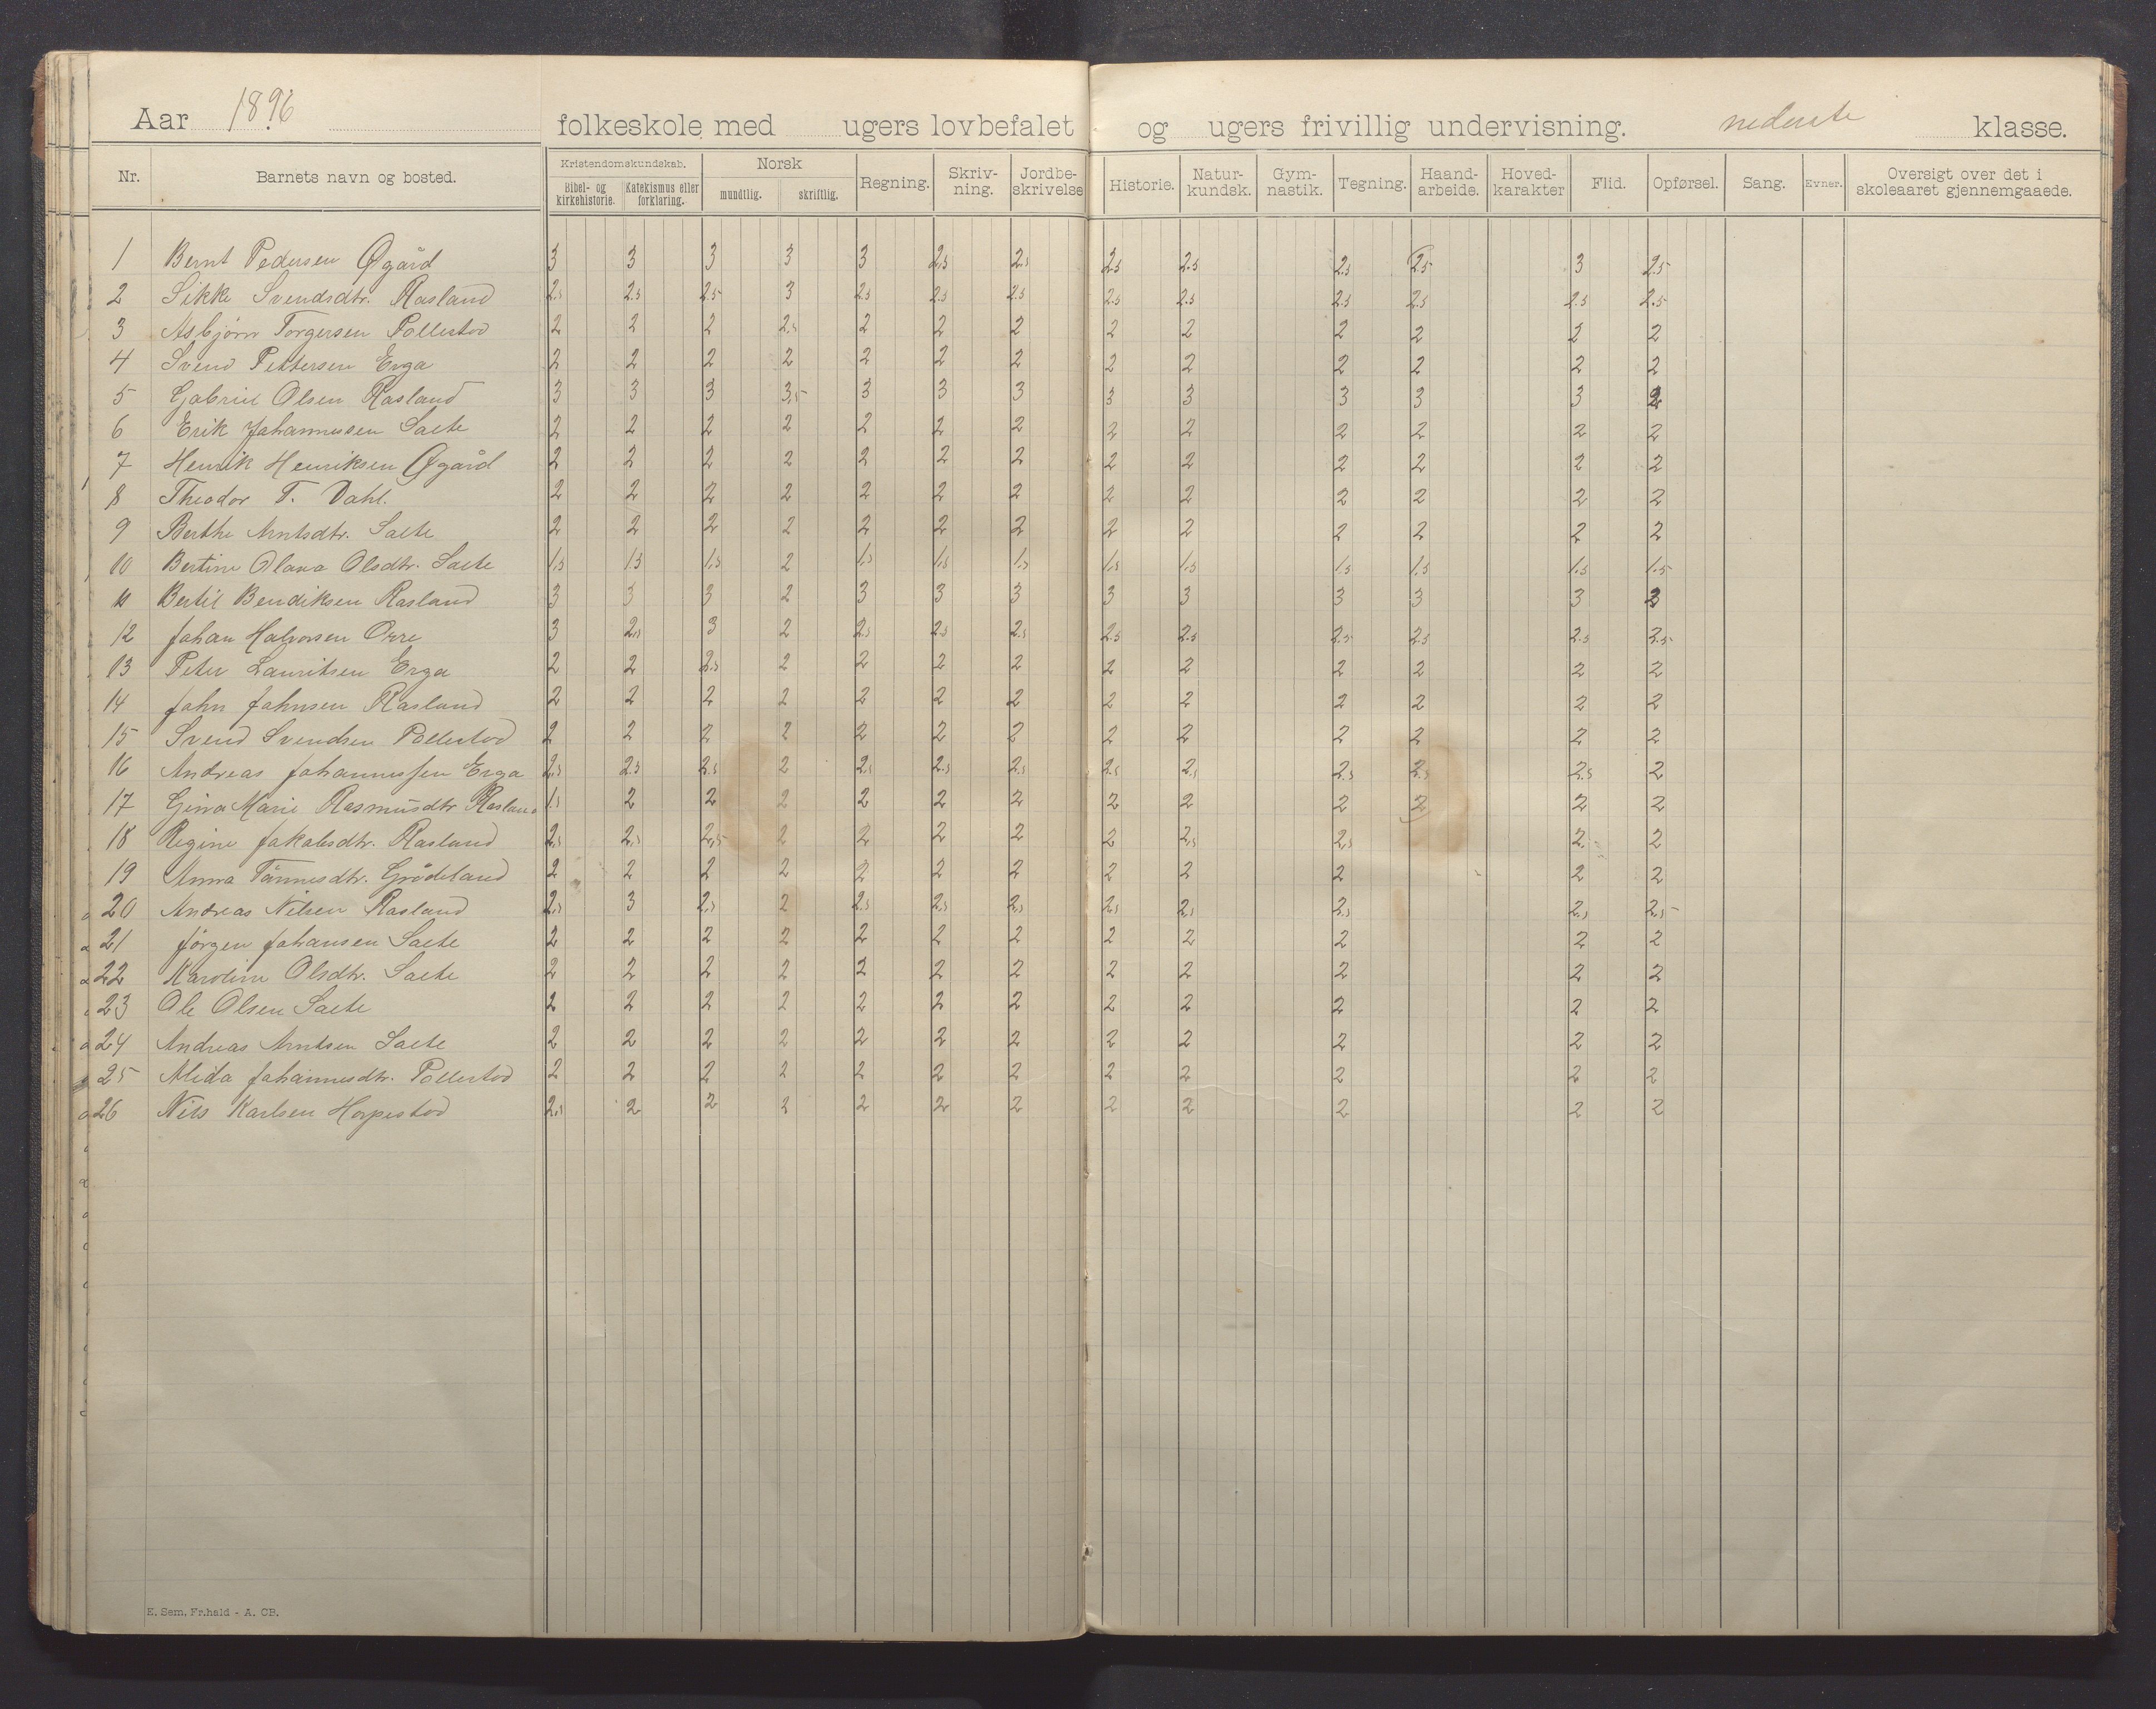 Aar 1896 folkeskole med ugers lovbefalet og ugers frivillig undervisning. nederste klasse.
Nr. Barnets navn og bosted. Kristendomskundskab. Bibel- og kirkehistorie. Katekismus eller forklaring. Norsk mundtlig. skriftlig. Regning. Skriv-ning. Jordbe-skrivelse Historie. Natur-kundsk. Gym-nastik. Tegning. Haand-arbeide. Hoved-karakter Flid. Opførsel. Sang. Evner. Oversigt over det i skoleaaret gjennemgaaede.
1 Bernt Pedersen Øgård 3 3 3 3 3 2.5 2.5 2.5 2.5 2.5 2.5 3 2.5
2 Sikke Svendsdtr. Rasland 2.5 2.5 2.5 3 2.5 2.5 2.5 2.5 2.5 2.5 2.5 2.5 2.5
3 Asbjörn Torgersen Pollestad 2 2 2 2.5 2 2 2 2 2 2 2 2 2
4 Svend Pettersen Erga 2 2 2 2 2 2 2 2 2 2 2 2 2
5 Gabriel Olsen Rasland 3 3 3 3.5 3 3 3 3 3 3 3 3 2
6 Erik Johannesen Salte 2 2 2 2 2 2 2 2 2 2 2 2 2
7 Henrik Henriksen Øgård 2 2 2 2 2 2 2 2 2 2 2 2 2
8 Theodor T. Dahl. 2 2 2 2 2 2 2 2 2 2 2 2 2
9 Berthe Arntsdtr. Salte 2 2 2 2 2 2 2 2 2 2 2 2 2
10 Bertine Olava Olsdtr. Salte 1.5 1.5 1.5 2 1.5 1.5 1.5 1.5 1.5 1.5 1.5 1.5 1.5
11 Bertil Bendiksen Rasland 3 3 3 2 3 3 3 3 3 3 3 3 3
12 Johan Halvorsen Orre 3 2.5 3 2 2.5 2.5 2.5 2.5 2.5 2.5 2.5 2.5 2.5
13 Peter Lauritsen Erga 2 2 2.5 2 2 2 2 2 2 2 2 2 2
14 John Johnsen Rasland 2 2 2 2 2 2 2 2 2 2 2 2 2
15 Svend Svendsen Pollestad 2 2 2 2 2 2 2 2 2 2 2 2 2
16 Andreas Johannessen Erga 2.5 2.5 2.5 2 2.5 2.5 2.5 2.5 2.5 2.5 2.5 2.5 2
17 Gina Marie Rasmusdtr Rasland 1.5 2 2 2 2 2 2 2 2 2 2 2 2
18 Regine Jakobsdtr. Rasland 2.5 2.5 2.5 2 2 2 2 2 2.5 2.5 2. 2
19 Anna Tönnesdtr. Grödeland 2 2 2 2 2 2 2 2 2 2 2 2
20 Andreas Nilsen Rasland 2.5 3 2.5 2 2.5 2.5 2.5 2.5 2.5 2.5 2.5 2.5
21 Jörgen Johansen Salte 2 2 2 2 2 2 2 2 2 2 2 2
22 Karoline Olsdtr. Salte 2 2 2 2 2 2 2 2 2 2 2 2
23 Ole Olsen Salte 2 2 2 2 2 2 2 2 2 2 2 2
24 Andreas Arntsen Salte 2 2 2 2 2 2 2 2 2 2 2 2
25 Alida Johannesdtr. Pollestad 2 2 2 2 2 2 2 2 2 2 2 2
26 Nils Karlsen Horpestad 2.5 2 2 2 2 2 2 2 2 2 2 2
E. Sem, Fr.hald - A. CB.